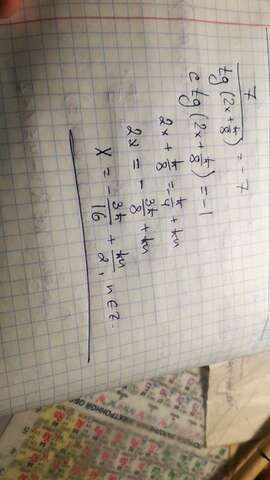 7/tg(2x+π/8) = -7
ctg(2x+π/8) = -1
2x + π/8 = -π/4 + πn
2x = -3π/8 + πn
x = -3π/16 + πn/2, n∈Z.